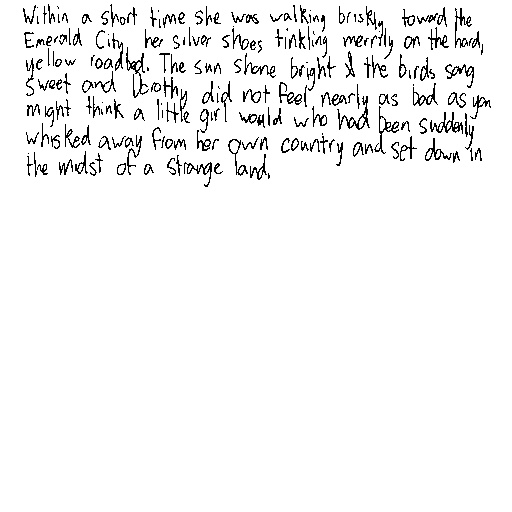 Within a short time she was walking briskly toward the
Emerald City, her silver shoes tinkling merrily on the hard,
yellow roadbed. The sun shone bright & the birds song
sweet and Dorothy did not feel nearly as bad as you
might think a little girl would who had been suddenly
whisked away from her own country and set down in
the midst of a strange land.